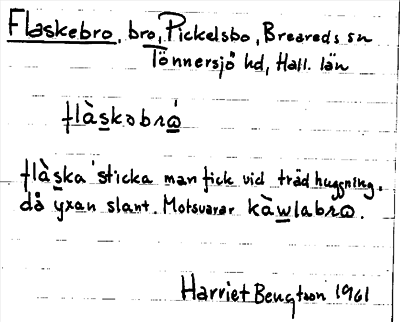 Flaskebro, bro, Pickelsbo, Breareds sn
Tönnersjö hd, Hall. län
flàskəbrώ
flàska 'sticka man fick vid trädhuggning.
då yxan slant. Motsvarar kàwlabrω.
Harriet Bengtson 1961